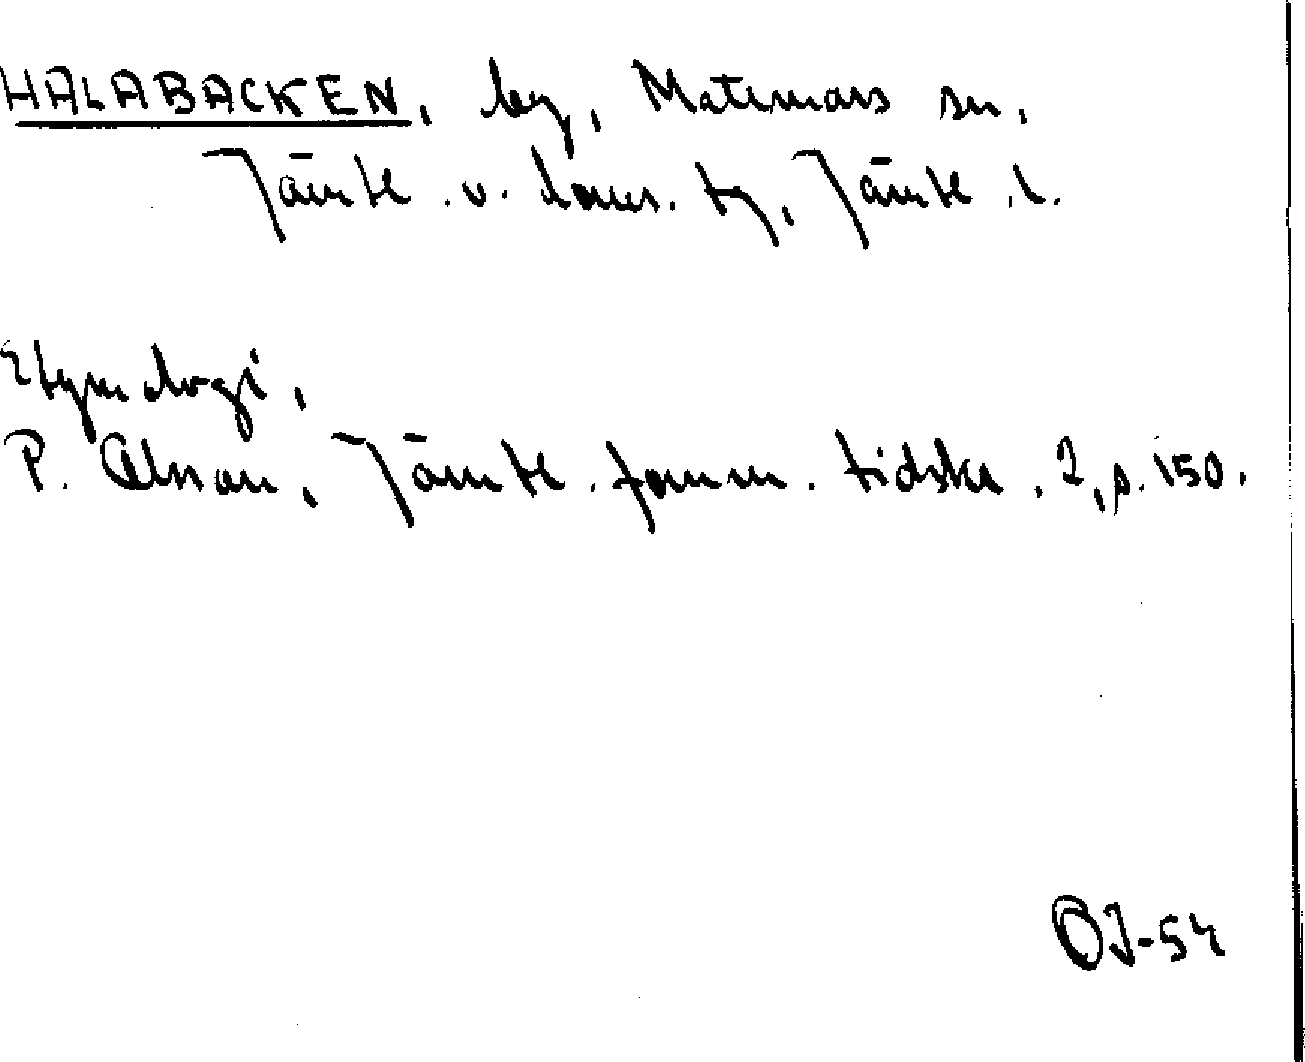 HALABACKEN, by, Mattmars sn,
Jämtl. v. doms. tg, Jämtl. l.
Etymologi,
P. Olsson, Jämtl. fornm. tidskr. 2, s. 150.
OJ-54